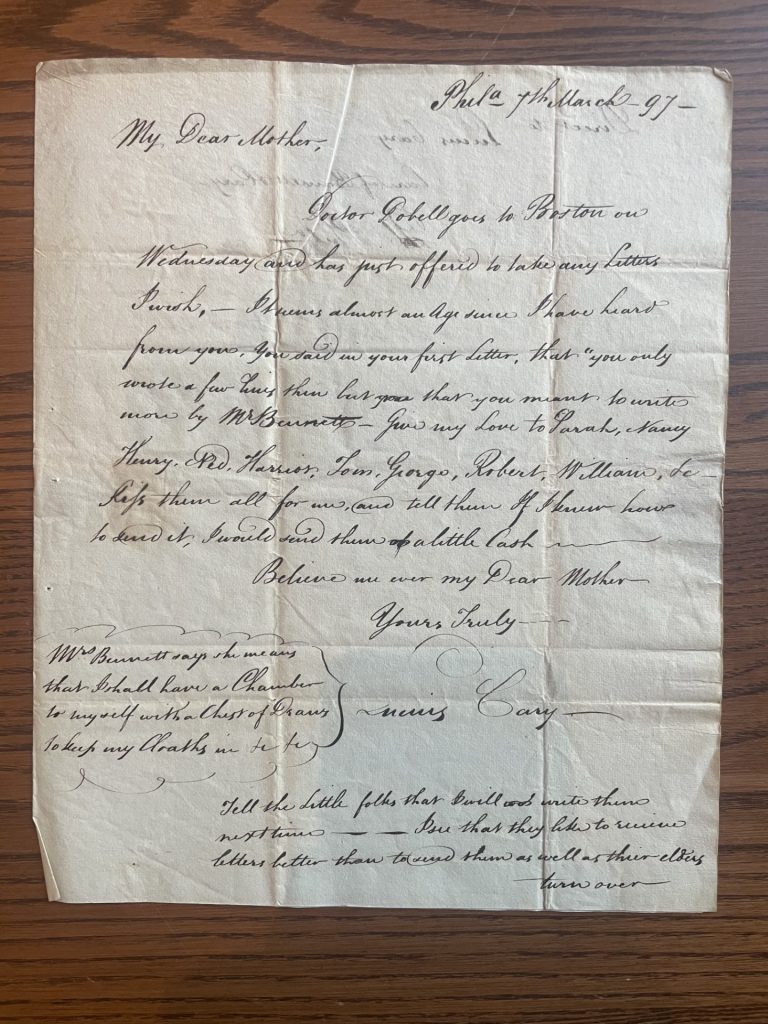 Phila 7th March - 97 -
My Dear Mother,
Doctor Dobell goes to Boston on
Wednesday and has just offered to take any Letters
I wish, - It seems almost an Age since I have heard
from you. You said in your first Letter, that "you only
wrote a few lines then but that you meant to write
more by Mr Bennett - Give my Love to Sarah, Nancy
Henry, Ned, Harriot, Tom, George, Robert, William, &c -
Kiss them all for me, and tell them If I knew how
to send it, I would send them a little Cash
Believe me ever my Dear Mother
Yours Truly -
Lucius Cary -
Mrs Bennett says she means
that I shall have a Chamber
to myself with a Chest of Draws
to keep my Cloaths in &c &c
Tell the Little folks that I will write them
next time - - I see that they like to receive
letters better than to send them as well as thier elders
turn over
Direct to
Lucius Cary